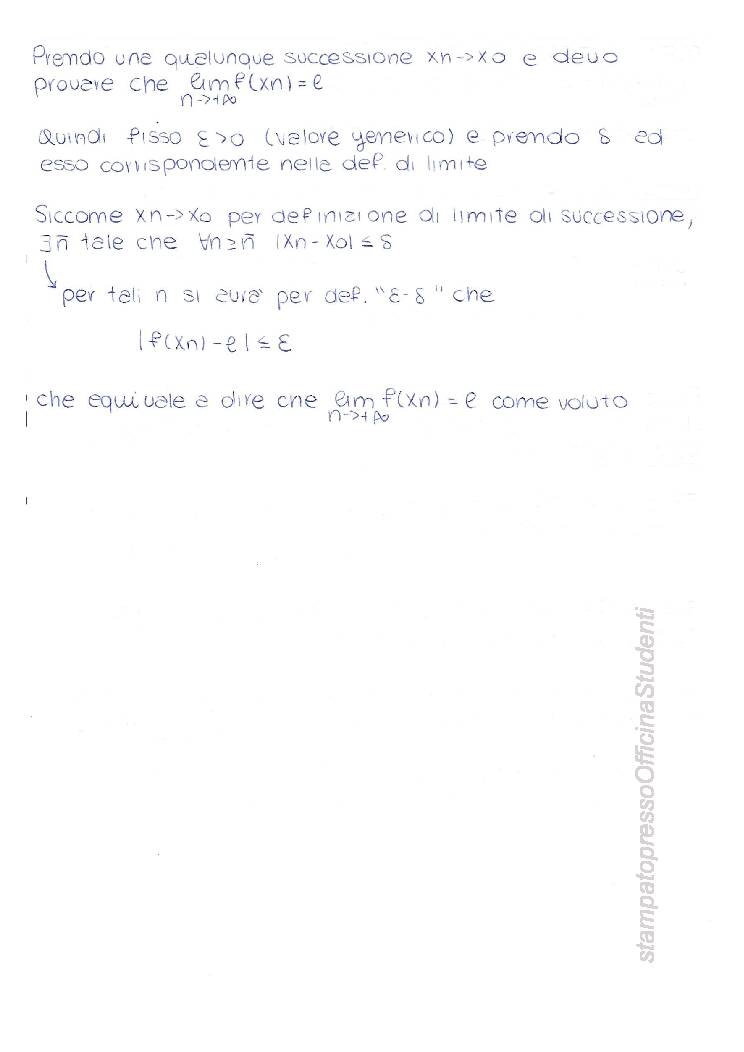 Prendo una qualunque successione xn->xo e devo
provare che lim f(xn) = l
n->+∞
Quindi fisso ε>0 (valore generico) e prendo δ ad
esso corrispondente nella def. di limite
Siccome xn->xo per definizione di limite di successione,
∃n̄ tale che ∀n≥n̄ |xn-xo| ≤ δ
per tali n si avrà per def. "ε-δ" che
|f(xn)-l| ≤ ε
che equivale a dire che lim f(xn) = l come voluto
n->+∞
stampatopressoOfficinaStudenti